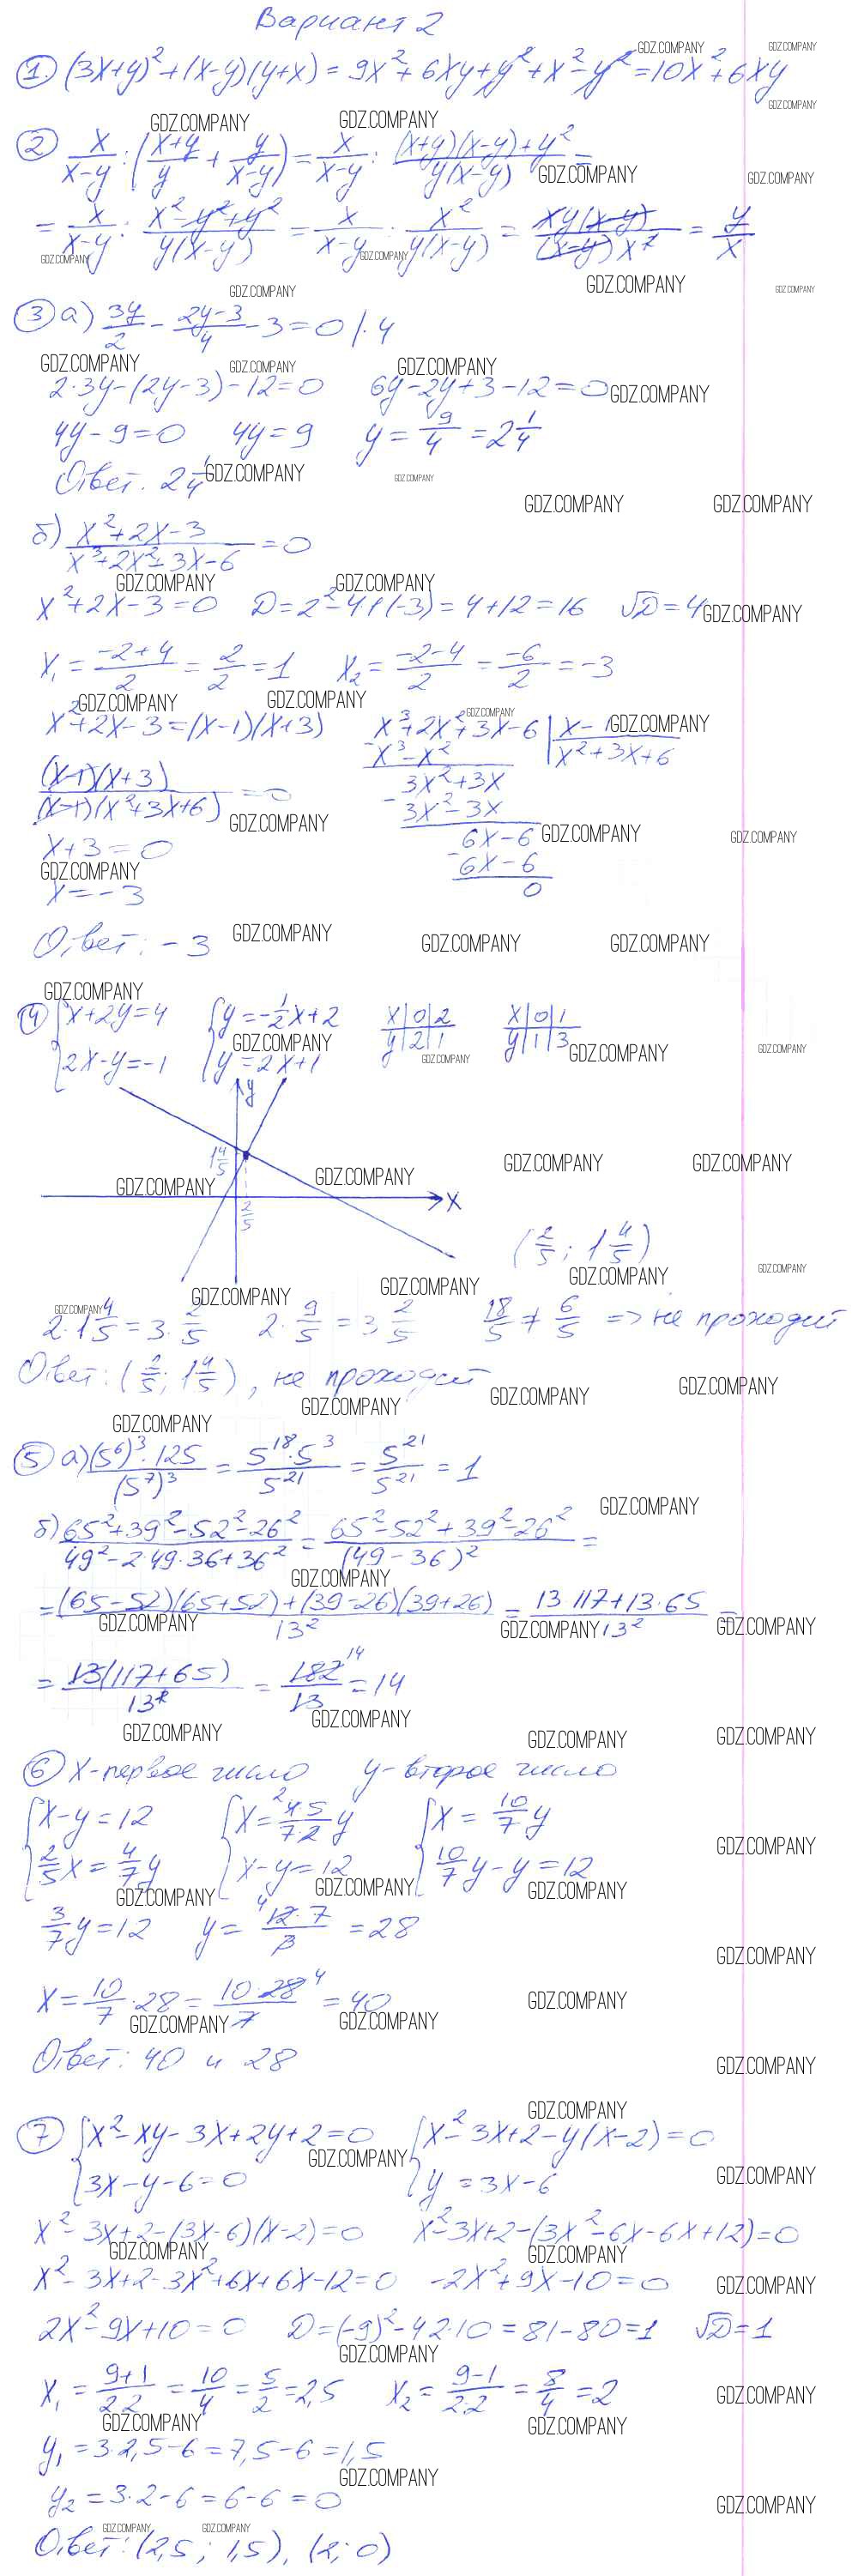 Вариант 2
① (3x+y)²+(x-y)(y+x) = 9x²+6xy+y²+x²-y²=10x²+6xy
② x/(x-y) : ((x+y)/y + y/(x-y)) = x/(x-y) : ((x+y)(x-y)+y²)/(y(x-y)) =
= x/(x-y) : (x²-y²+y²)/(y(x-y)) = x/(x-y) : x²/(y(x-y)) = xy(x-y)/((x-y)x²) = y/x
③ а) 3y/2 - (2y-3)/4 - 3 = 0 |·4
2·3y-(2y-3)-12=0 6y-2y+3-12=0
4y-9=0 4y=9 y=9/4=2 1/4
Ответ. 2 1/4
б) (x²+2x-3)/(x³+2x²+3x-6) = 0
x²+2x-3=0 D=2²-4·1·(-3)=4+12=16 √D=4
x₁=(-2+4)/2=2/2=1 x₂=(-2-4)/2=-6/2=-3
x²+2x-3=(x-1)(x+3) x³+2x²+3x-6 | x-1
x³-x² x²+3x+6
3x²+3x
(x-1)(x+3)/((x-1)(x²+3x+6)) = 0 3x²-3x
6x-6
x+3=0 6x-6
x=-3 0
Ответ: -3
④ {x+2y=4 {y=-1/2x+2 x|0|2 x|0|1
{2x-y=-1 {y=2x+1 y|2|1 y|1|3
y
1 4/5
x
2/5
(2/5; 1 4/5)
2·1 4/5=3·2/5 2·9/5=3·2/5 18/5≠6/5 => не проходит
Ответ: (2/5; 1 4/5), не проходит
⑤ а) (5⁶)³·125/(5⁷)³ = 5¹⁸·5³/5²¹ = 5²¹/5²¹ = 1
б) (65²+39²-52²-26²)/(49²-2·49·36+36²) = (65²-52²+39²-26²)/(49-36)² =
= ((65-52)(65+52)+(39-26)(39+26))/13² = (13·117+13·65)/13² =
= 13(117+65)/13² = 182/13 = 14
⑥ x-первое число y-второе число
{x-y=12 {x=4·5/(7·2)y {x=10/7y
{2/5x=4/7y {x-y=12 {10/7y-y=12
3/7y=12 y=12·7/3=28
x=10/7·28=10·28/7=40
Ответ: 40 и 28
⑦ {x²-xy-3x+2y+2=0 {x²-3x+2-y(x-2)=0
{3x-y-6=0 {y=3x-6
x²-3x+2-(3x-6)(x-2)=0 x²-3x+2-(3x²-6x-6x+12)=0
x²-3x+2-3x²+6x+6x-12=0 -2x²+9x-10=0
2x²-9x+10=0 D=(-9)²-4·2·10=81-80=1 √D=1
x₁=(9+1)/(2·2)=10/4=5/2=2,5 x₂=(9-1)/(2·2)=8/4=2
y₁=3·2,5-6=7,5-6=1,5
y₂=3·2-6=6-6=0
Ответ: (2,5; 1,5), (2; 0)
GDZ.COMPANY